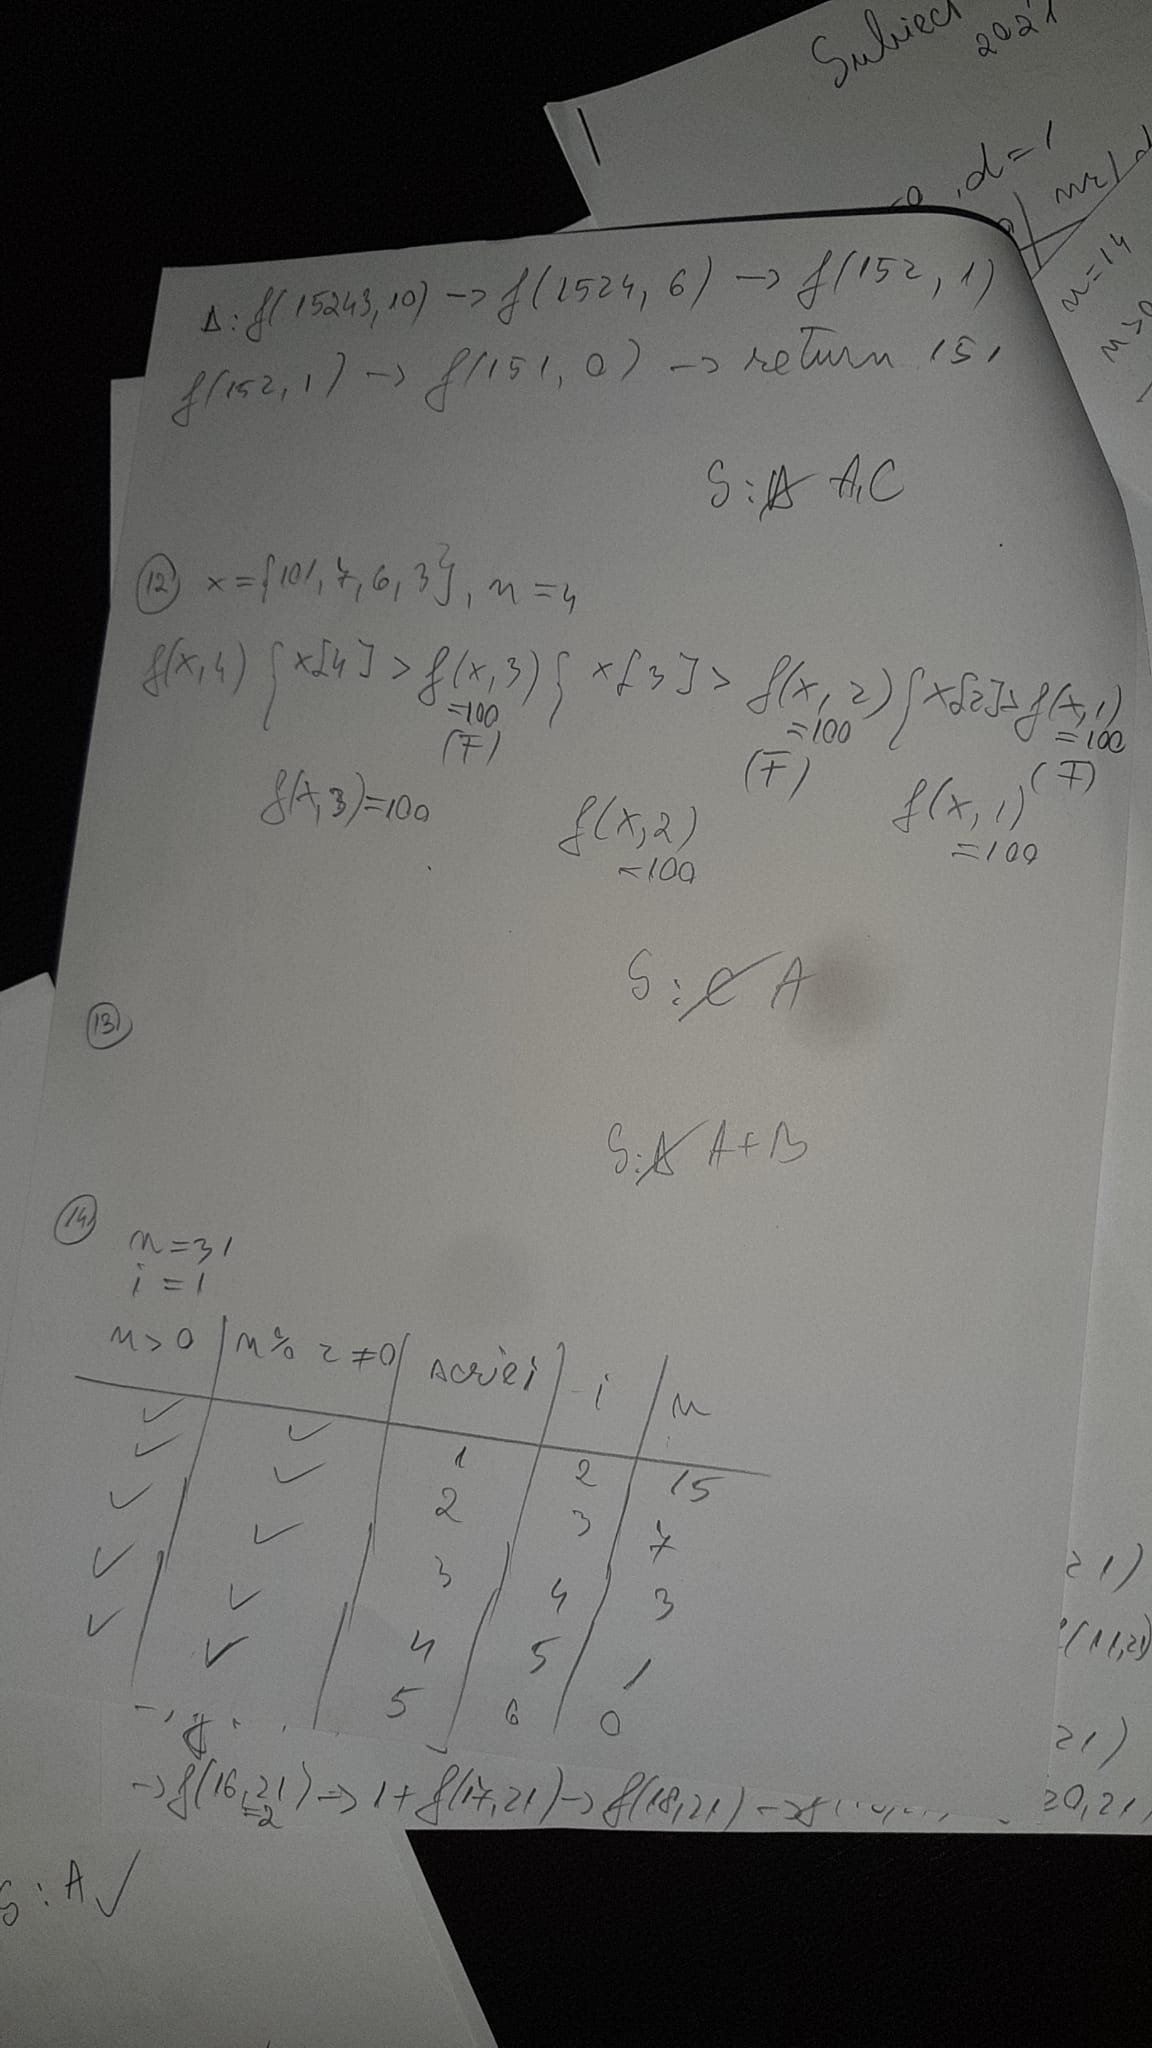 Subiect
2021
, d=1
n=14
Δ: f(15243,10) -> f(1524, 6) -> f(152, 1)
f(152, 1) -> f(151, 0) -> return 151
S: A A,C
12 x={101, 7, 6, 3}, n=4
f(x,4) { x[4] > f(x,3) { x[3] > f(x, 2) { x[2] > f(x,1)
=100 =100 =100
(F) (F) (F)
f(x,3)=100 f(x,2) f(x,1)
=100 =100
S: C A
13
S: A A+B
14
n=31
i=1
n>0 | n% 2 ≠0 | scrie i | i | n
✓ ✓ 1 2 15
✓ ✓ 2 3 7
✓ ✓ 3 4 3
✓ ✓ 4 5 1
✓ ✓ 5 6 0
21)
(11,21)
21)
-> f(16,21) => 1+ f(17,21) -> f(18,21) -> 20,21)
=2
S: A ✓